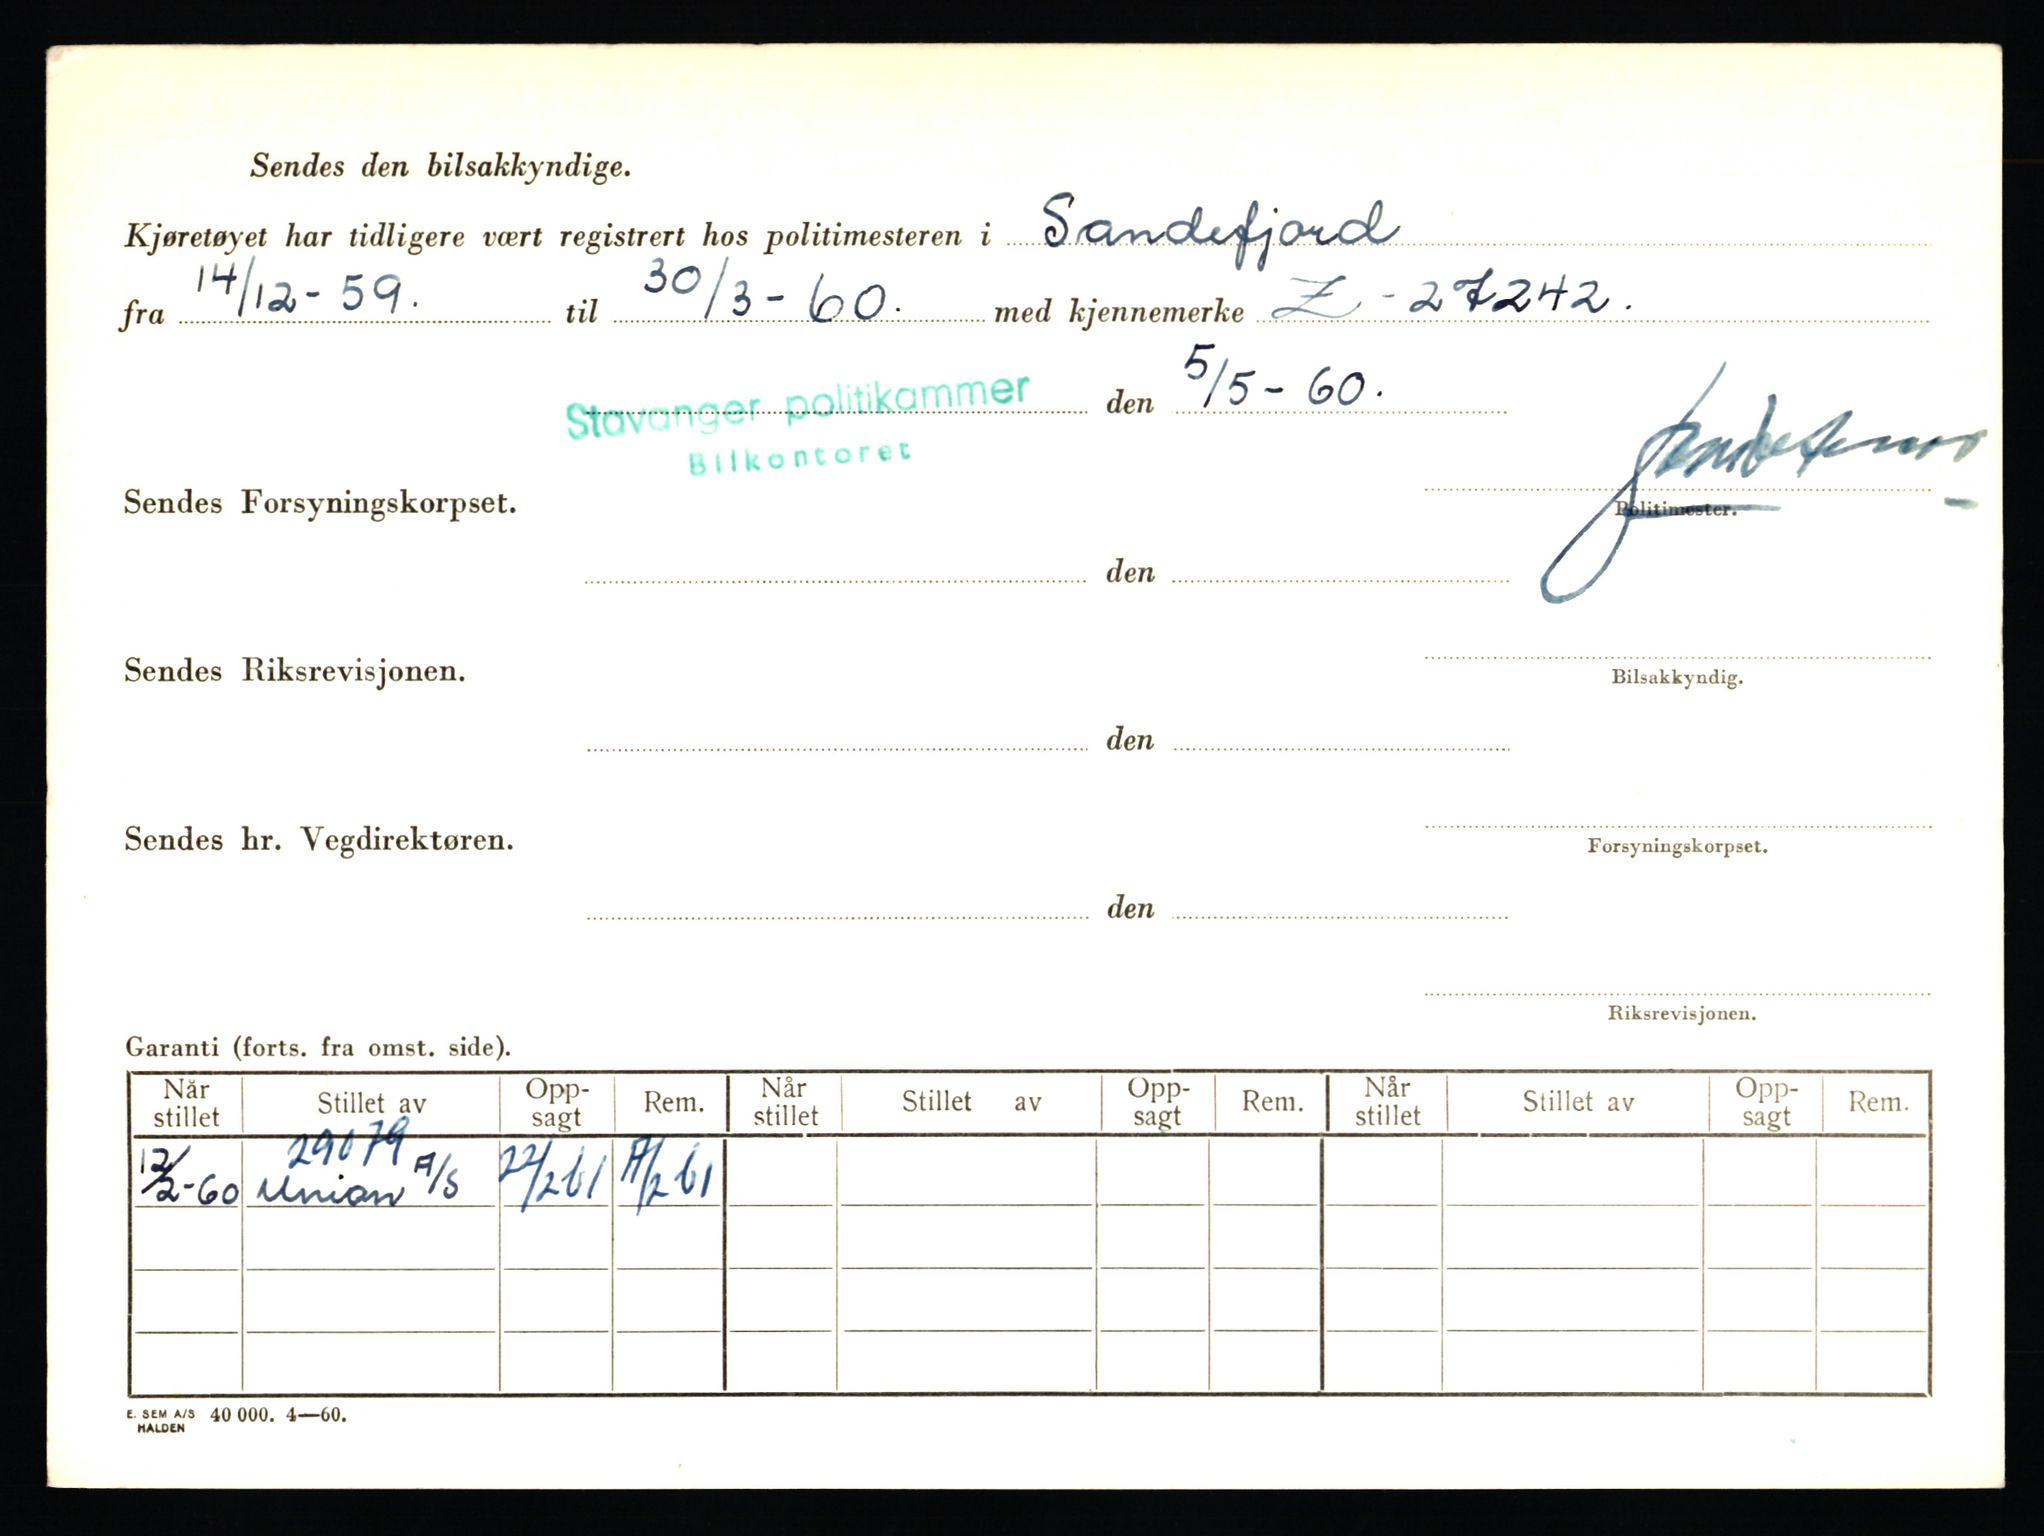 Sendes den bilsakkyndige.
Kjøretøyet har tidligere vært registrert hos politimesteren i Sandefjord
fra 14/12-59. til 30/3-60. med kjennemerke Z-27242.
Stavanger politikammer den 5/5-60.
Bilkontoret
Sendes Forsyningskorpset.
Politimester.
den
Sendes Riksrevisjonen.
Bilsakkyndig.
den
Sendes hr. Vegdirektøren.
Forsyningskorpset.
den
Riksrevisjonen.
Garanti (forts. fra omst. side).
Når stillet Stillet av Opp-sagt Rem. Når stillet Stillet av Opp-sagt Rem. Når stillet Stillet av Opp-sagt Rem.
29079
12/2-60 Union A/S 22/2 61 /2 61
E. SEM A/S 40 000. 4—60.
HALDEN